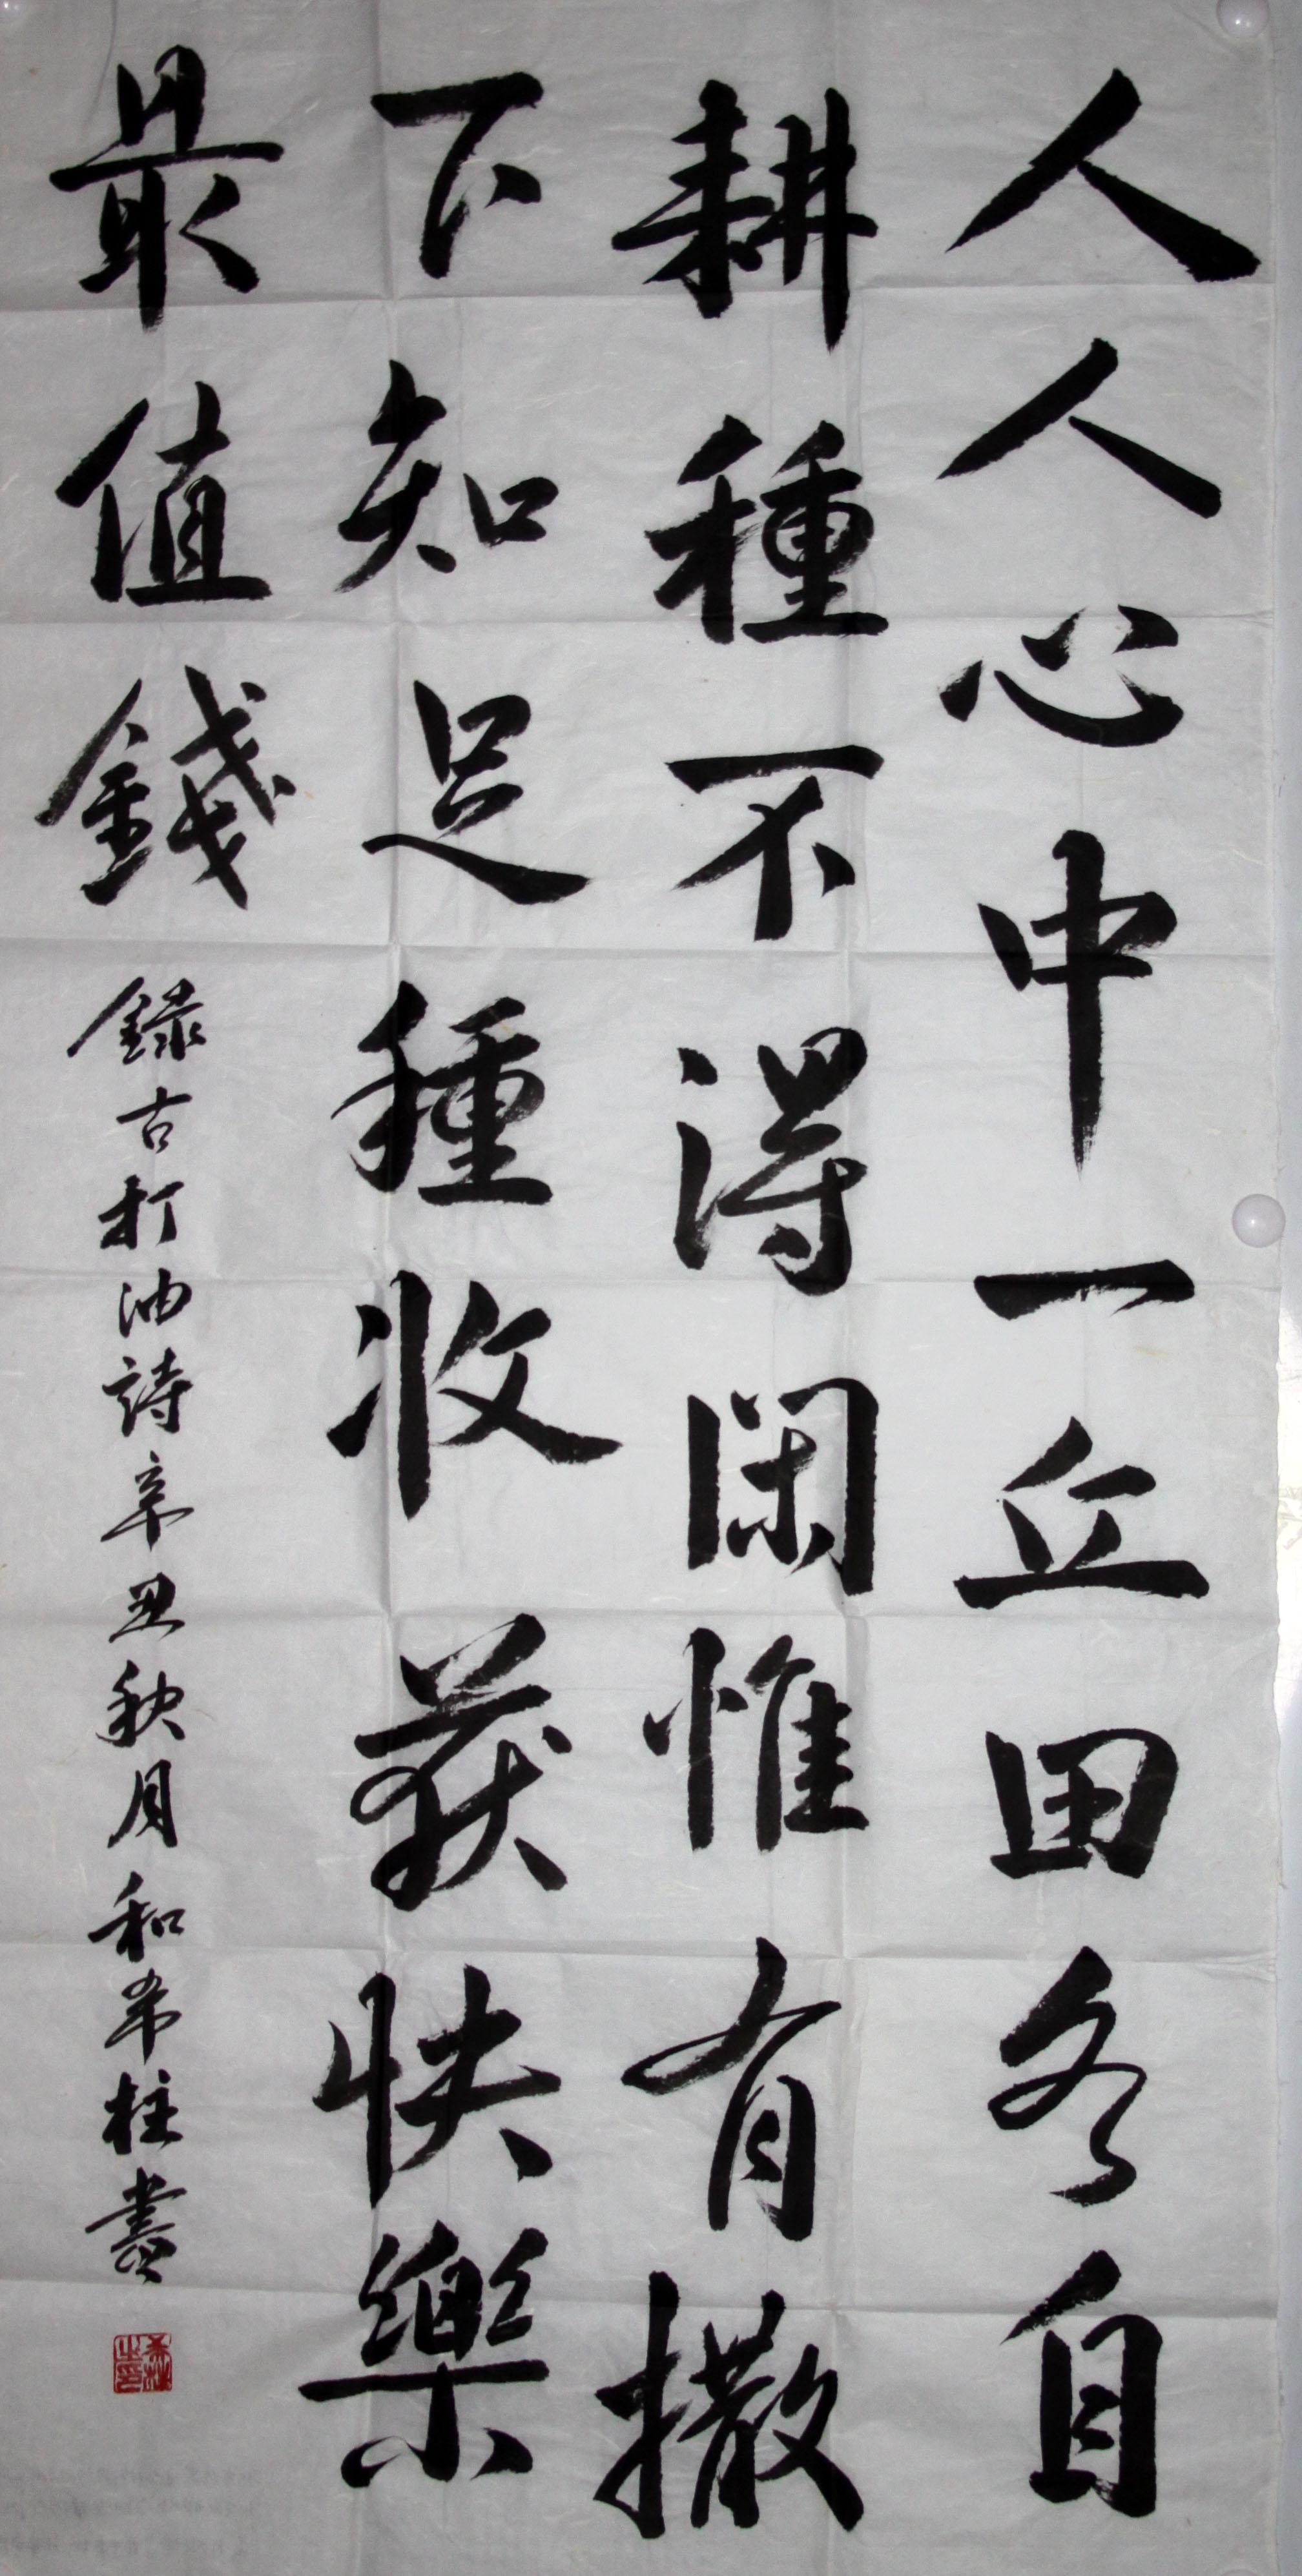 人人心中一丘田各自
耕種不得閑惟有撒
下知足種收获快樂
最值錢
録古打油詩辛丑秋月和希柱書
希柱之印